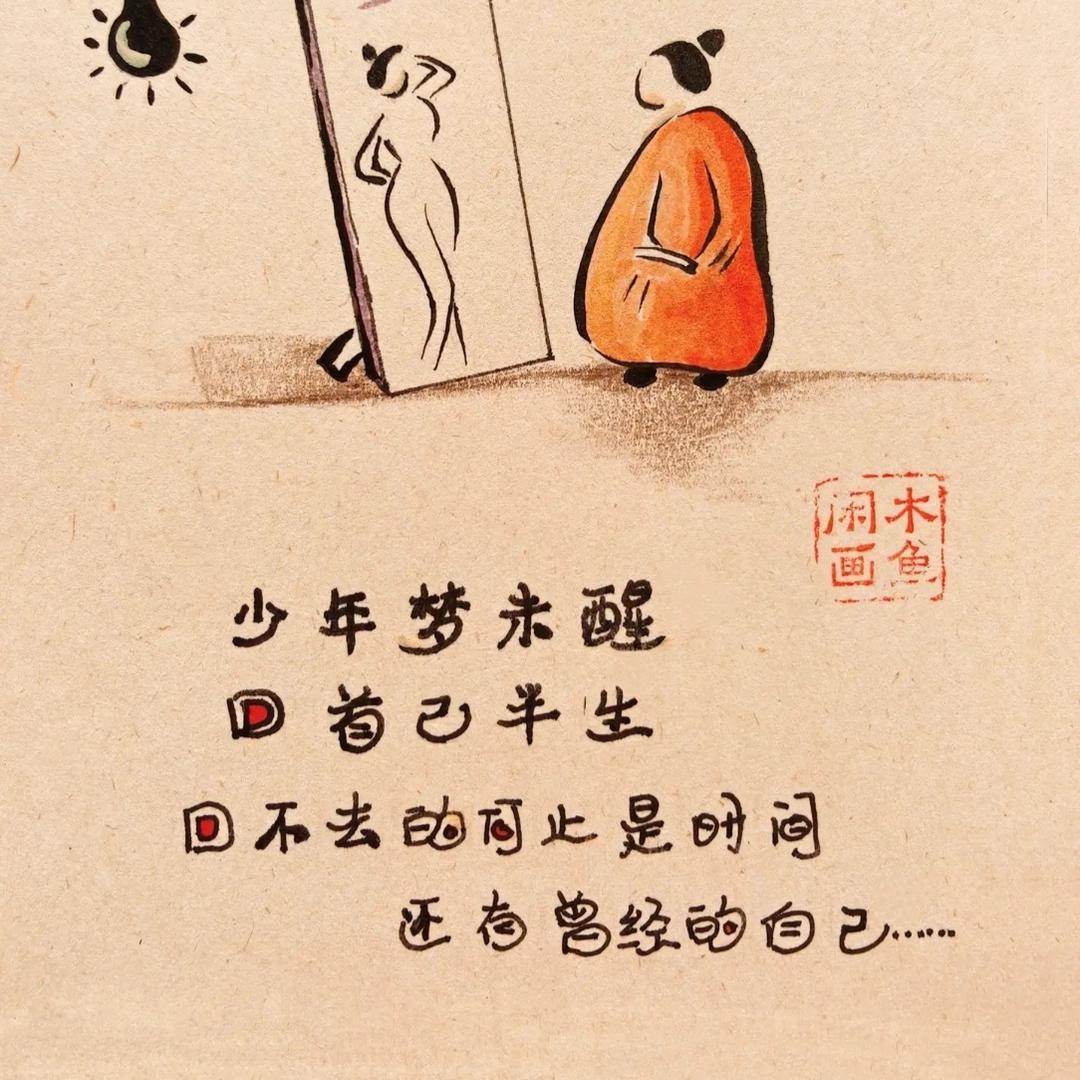 木鱼
闲画
少年梦未醒
回首已半生
回不去的何止是时间
还有曾经的自己……